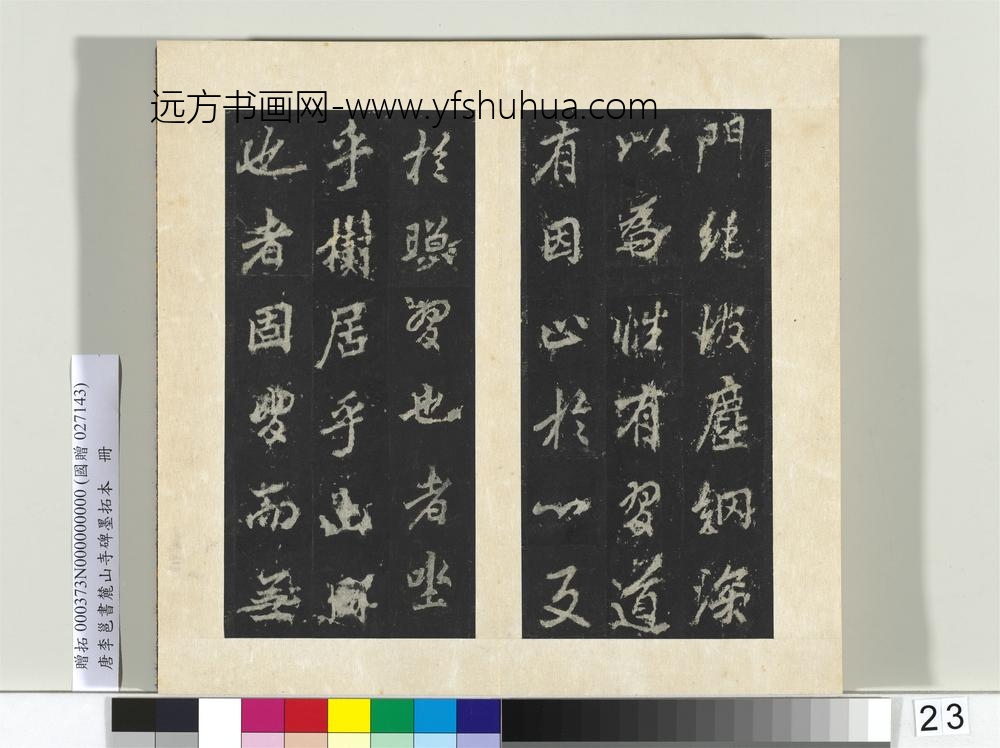 远方书画网-www.yfshuhua.com
門純彼塵網深
以為性有習道
有因止於心反
於習也者坐
乎樹居乎山
也者固習而無
贈拓 000373N000000000 (國贈 027143)
唐李邕書麓山寺碑墨拓本 冊
23